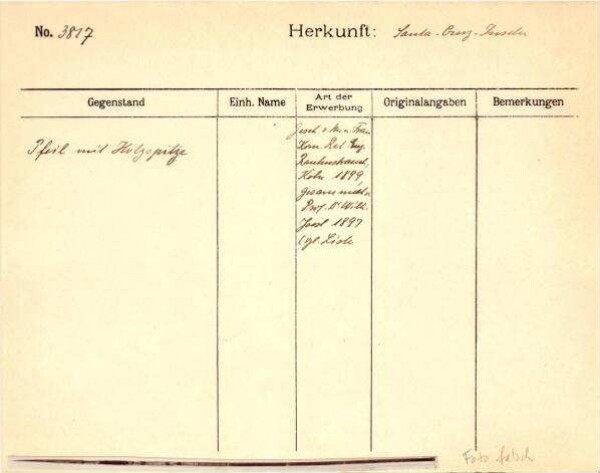 No. 3817
Herkunft: Santa-Cruz-Inseln
Gegenstand
Einh. Name
Art der Erwerbung
Originalangaben
Bemerkungen
Pfeil mit Holzspitze
Gesch. v. Hrn. u. Frau
Kom. Rat Eug.
Rautenstrauch,
Köln 1899,
Gesammelt v.
Prof. Dr Wilh.
Joest 1897
Vgl. Liste
Foto falsch